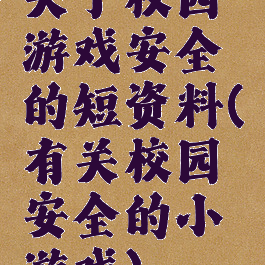 关于校园
游戏安全
的短资料(
有关校园
安全的小
游戏)